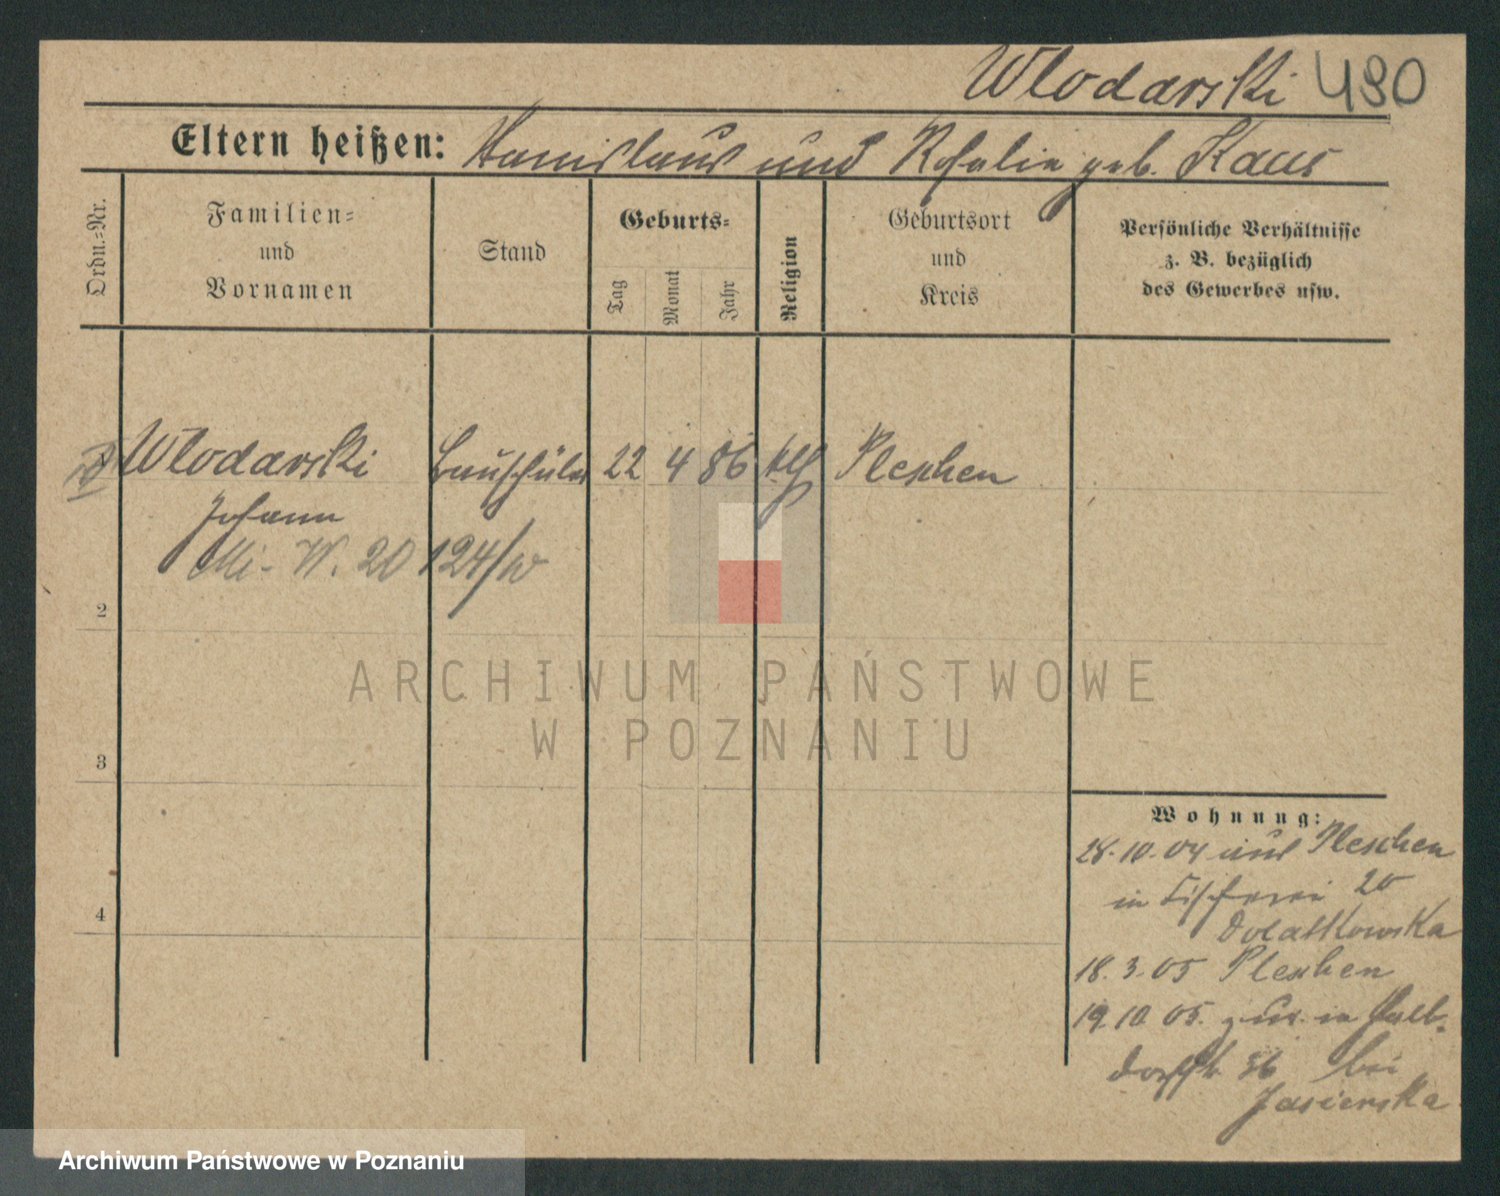 Wlodarski 490
Eltern heißen: Stanislaus und Rosalie geb. Kaus
Ordn.-Nr.
Familien-
und
Vornamen
Stand
Geburts-
Tag
Monat
Jahr
Religion
Geburtsort
und
Kreis
Persönliche Verhältnisse
z. B. bezüglich
des Gewerbes usw.
Wlodarski Bauschüler 22 4 86 kth Pleschen
Johann
Mi- W. 20 124/
2
3
4
ARCHIWUM PAŃSTWOWE
W POZNANIU
Wohnung:
28.10.04 aus Pleschen
in Fischerei 20
Dolatkowska
18.3.05 Pleschen
19.10.05. zur. in Halb-
dorfstr. 36 bei
Jasierska
Archiwum Państwowe w Poznaniu